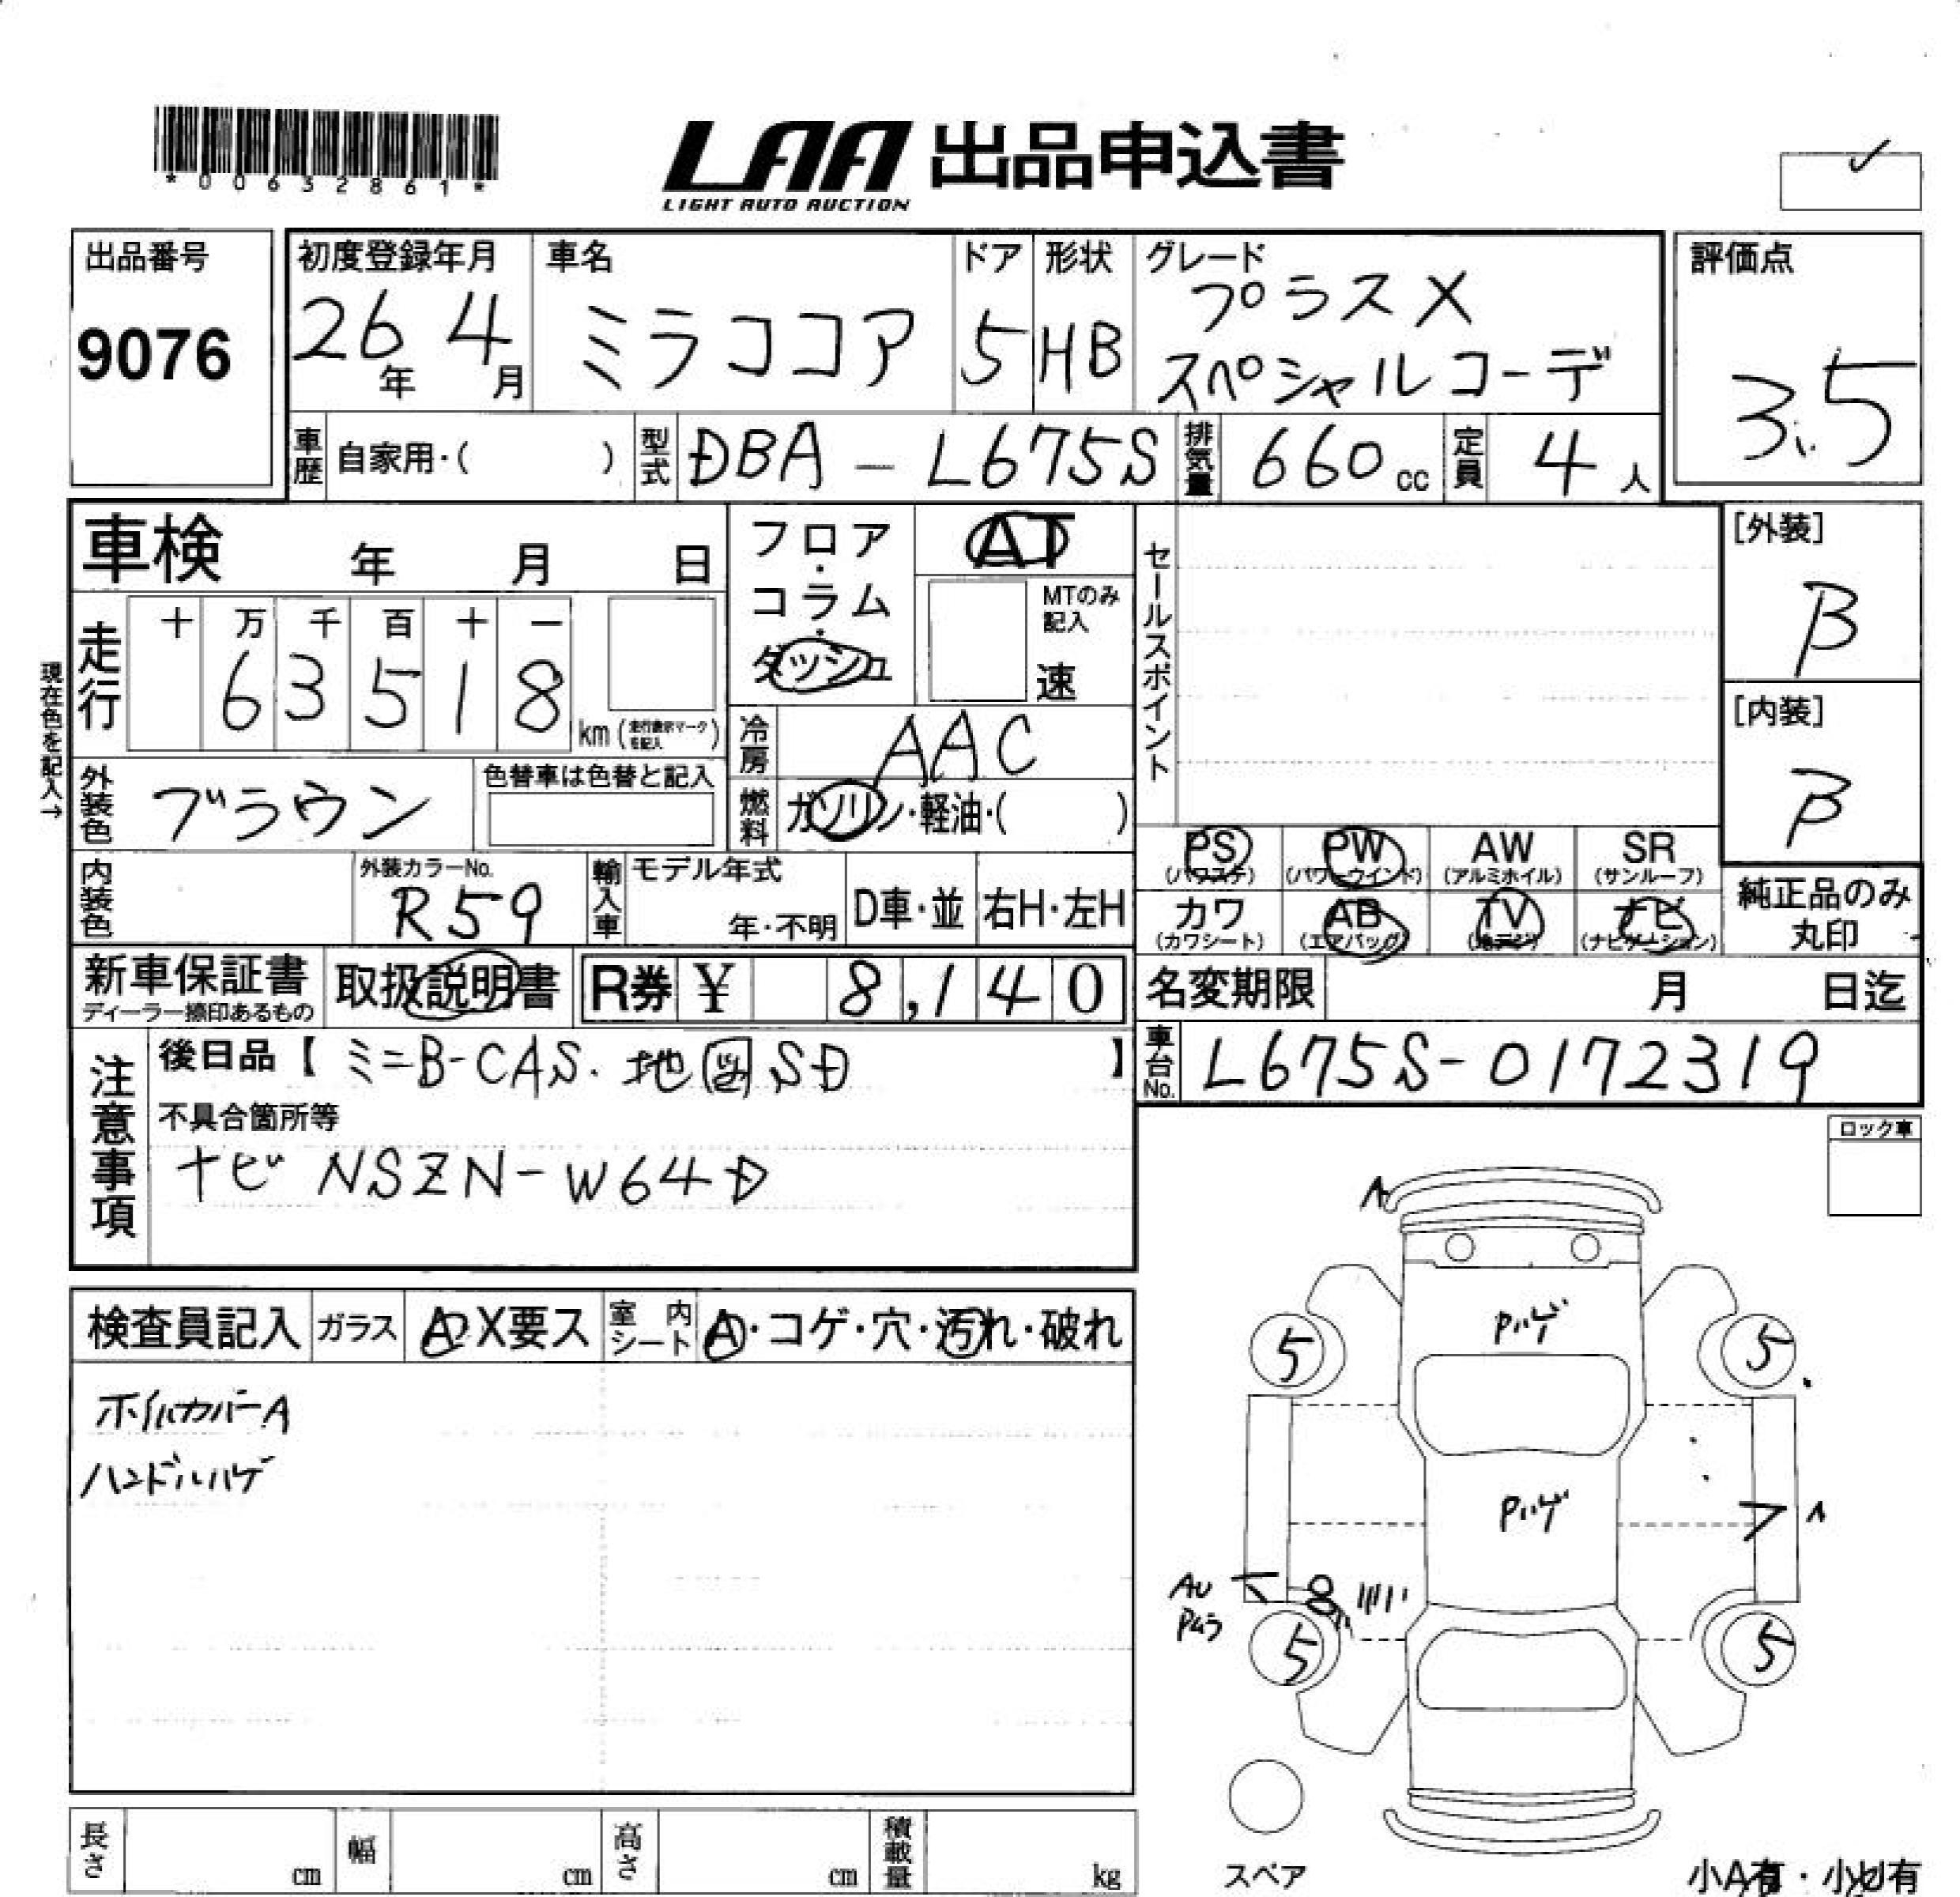 *00632861*
LAA 出品申込書
LIGHT AUTO AUCTION
出品番号
9076
初度登録年月
26年 4月
車名
ミラココア
ドア
5
形状
HB
グレード
プラスX
スペシャルコーデ
評価点
3.5
車歴 自家用・( )
型式 DBA-L675S
排気量 660cc
定員 4人
車検 年 月 日
フロア・コラム・ダッシュ
AT
MTのみ記入
速
セールスポイント
[外装]
B
[内装]
B
現在色を記入→
走行
十 万 千 百 十 一
63518
km (走行表示マークを記入)
冷房 AAC
外装色 ブラウン
色替車は色替と記入
燃料 ガソリン・軽油・( )
内装色
外装カラーNo.
R59
輸入車
モデル年式
年・不明
D車・並
右H・左H
PS (パワステ)
PW (パワーウインド)
AW (アルミホイル)
SR (サンルーフ)
カワ (カワシート)
AB (エアバッグ)
TV (地デジ)
ナビ (ナビゲーション)
純正品のみ丸印
新車保証書
ディーラー捺印あるもの
取扱説明書
R券 ¥ 8,140
名変期限 月 日迄
車台No. L675S-0172319
注意事項
後日品【ミニB-CAS.地図SD】
不具合箇所等
ナビ NSZN-W64D
ロック車
検査員記入
ガラス
A・X要ス
室内シート
A・コゲ・穴・汚れ・破れ
ホイルカバーA
ハンドルハゲ
A
Pハゲ
5 5
Pハゲ
AU
Pムラ
8
5 5
スペア
長さ cm
幅 cm
高さ cm
積載量 kg
小A有・小U有